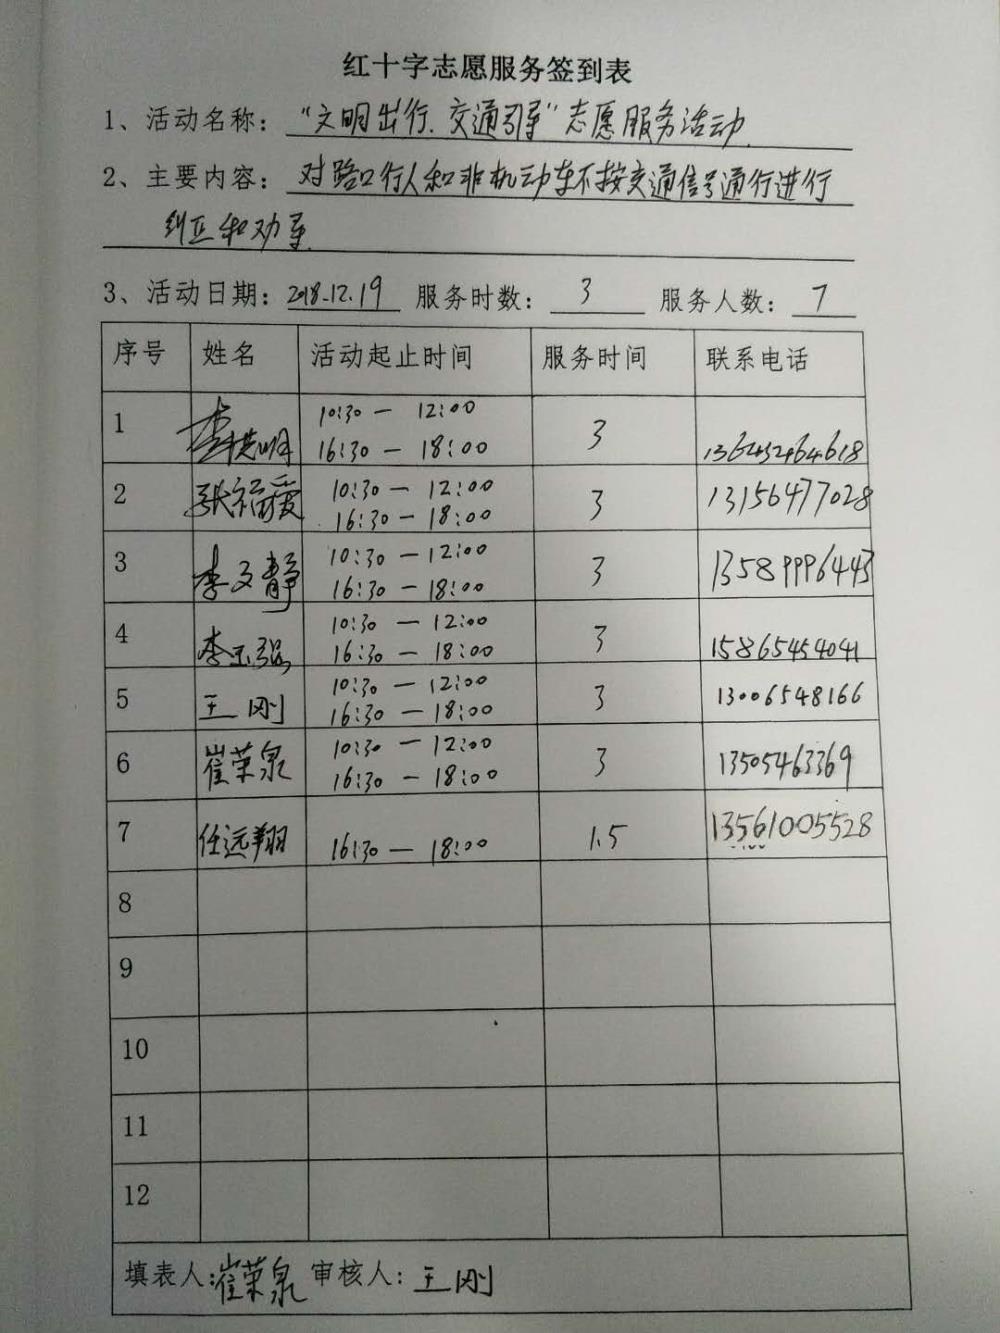 红十字志愿服务签到表
1、活动名称：“文明出行、交通引导”志愿服务活动.
2、主要内容：对路口行人和非机动车不按交通信号通行进行
纠正和劝导.
3、活动日期：2018.12.19 服务时数：3 服务人数：7
序号 姓名 活动起止时间 服务时间 联系电话
1 李洪明 10:30 — 12:00 16:30 — 18:00 3
2 张福爱 10:30 — 12:00 16:30 — 18:00 3 13156477028
3 李文静 10:30 — 12:00 16:30 — 18:00 3 13589996443
4 李玉强 10:30 — 12:00 16:30 — 18:00 3 15865454041
5 王刚 10:30 — 12:00 16:30 — 18:00 3 13006548166
6 崔荣泉 10:30 — 12:00 16:30 — 18:00 3 13505463369
7 任远翔 16:30 — 18:00 1.5 13561005528
8
9
10
11
12
填表人：崔荣泉 审核人：王刚